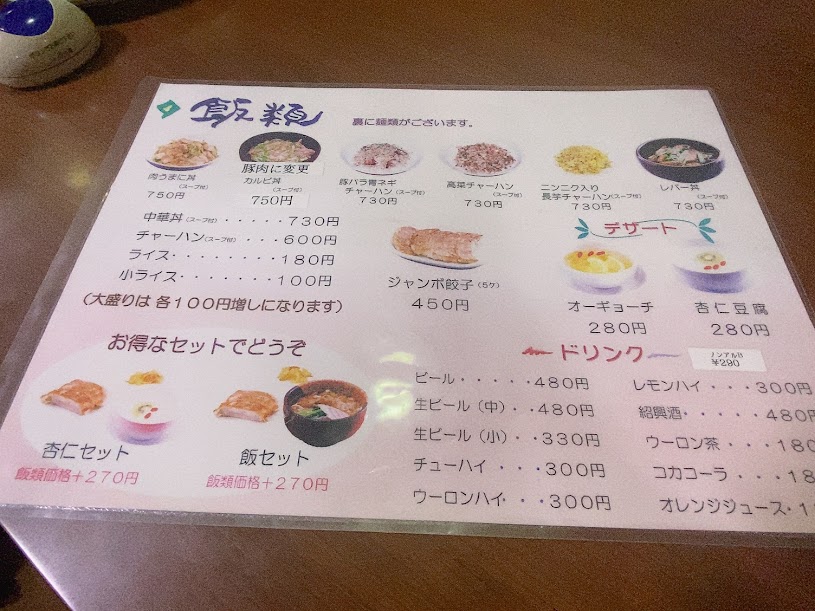 飯類
裏に麺類がございます。
肉うまに丼
(スープ付)
750円
豚肉に変更
カルビ丼
(スープ付)
750円
豚バラ青ネギ
チャーハン(スープ付)
730円
高菜チャーハン
(スープ付)
730円
ニンニク入り
長芋チャーハン(スープ付)
730円
レバー丼
(スープ付)
730円
中華丼(スープ付)・・・・・730円
チャーハン(スープ付)・・・600円
ライス・・・・・・・・180円
小ライス・・・・・・・100円
(大盛りは 各100円増しになります)
ジャンボ餃子(5ケ)
450円
デザート
オーギョーチ
280円
杏仁豆腐
280円
お得なセットでどうぞ
杏仁セット
飯類価格+270円
飯セット
飯類価格+270円
ドリンク
ノンアルB
¥290
ビール・・・・・480円
生ビール(中)・・480円
生ビール(小)・・330円
チューハイ・・・300円
ウーロンハイ・・・300円
レモンハイ・・・300円
紹興酒・・・・・480円
ウーロン茶・・・180
コカコーラ・・・18
オレンジジュース・1